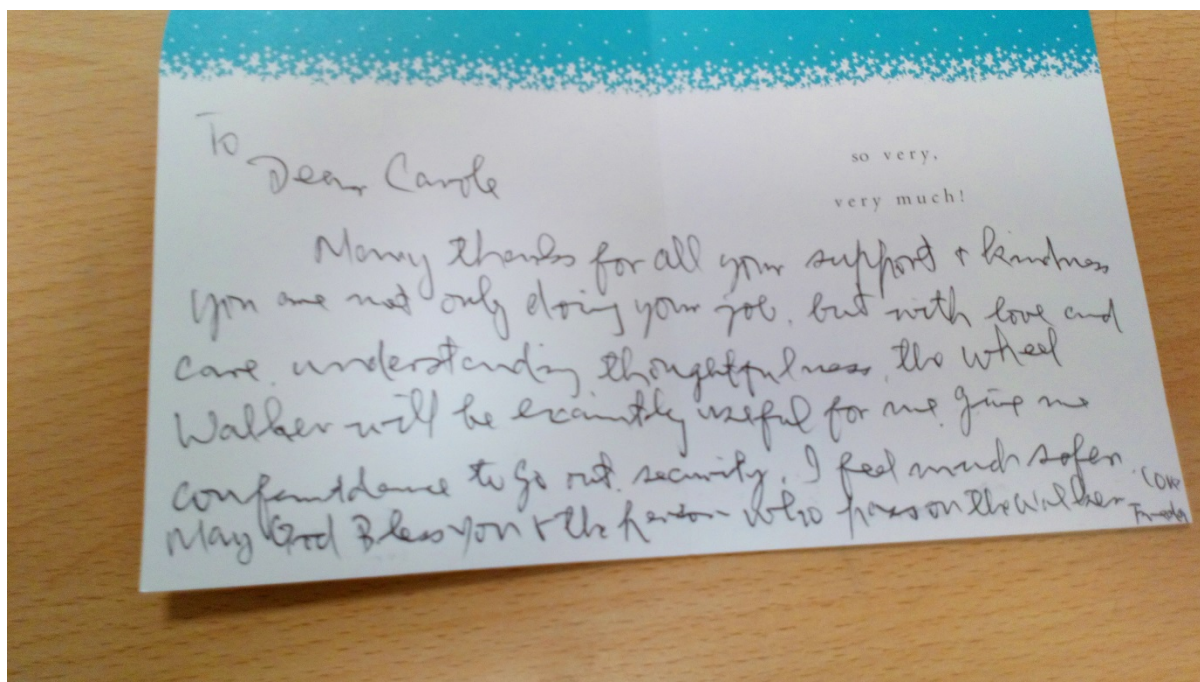 To
Dear Carole
so very,
very much!
Many thanks for all your support & kindness
you are not only doing your job, but with love and
care, understanding, thoughtfulness, the wheel
Walker will be useful for me, give me
to go out, security, I feel much safer.
May God Bless you & the person who pass on the Walker. Love